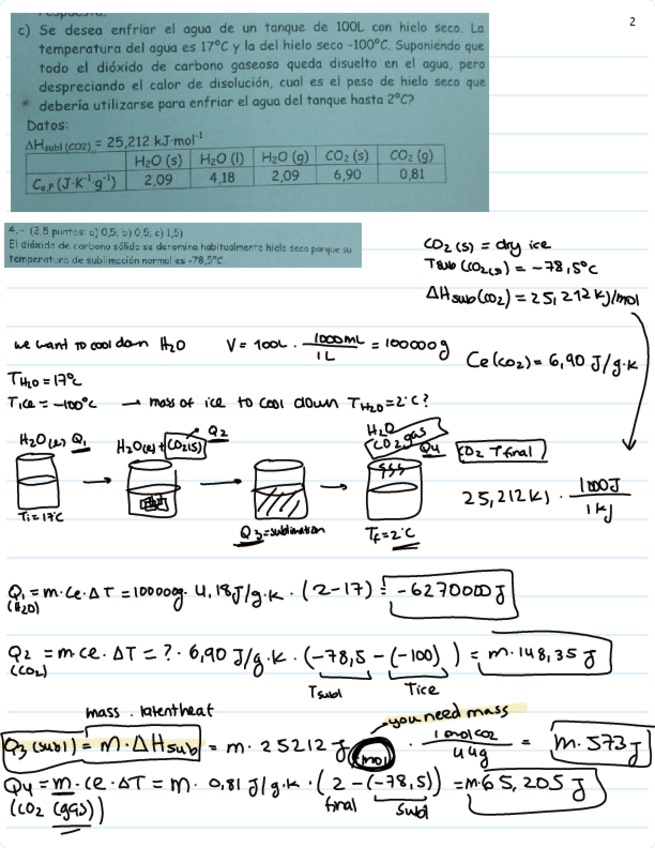 2
c) Se desea enfriar el agua de un tanque de 100L con hielo seco. La
temperatura del agua es 17ºC y la del hielo seco -100ºC. Suponiendo que
todo el dióxido de carbono gaseoso queda disuelto en el agua, pero
despreciando el calor de disolución, cual es el peso de hielo seco que
debería utilizarse para enfriar el agua del tanque hasta 2ºC?
Datos:
ΔHsubl (CO2) = 25,212 kJ·mol⁻¹
H₂O (s) H₂O (l) H₂O (g) CO₂ (s) CO₂ (g)
Ce,p (J·K⁻¹g⁻¹) 2,09 4,18 2,09 6,90 0,81
4.- (2,5 puntos: a) 0,5; b) 0,5; c) 1,5)
El dióxido de carbono sólido se denomina habitualmente hielo seco porque su
temperatura de sublimación normal es -78,5ºC.
CO₂ (s) = dry ice
Tsub (CO₂(s)) = -78,5ºC
ΔHsub (CO₂) = 25,212 KJ/mol
we want to cool down H₂O V = 100L · 1000mL / 1L = 100000g
Ce(CO₂) = 6,90 J/g·K
TH₂O = 17ºC
Tice = -100ºC → mass of ice to cool down TH₂O = 2ºC?
H₂O(l) Q₁ H₂O(l) + CO₂(s) Q2 H₂O CO₂ gas Q4 CO₂ Tfinal
25,212 KJ · 1000J / 1KJ
Ti = 17ºC Q3 = sublimation Tf = 2ºC
Q₁ = m·Ce·ΔT = 100000g · 4,18J/g·K · (2-17) = -6270000J
(H₂O)
Q2 = m·ce·ΔT = ? · 6,90 J/g·K · (-78,5 - (-100)) = m·148,35 J
(CO₂) Tsubl Tice
mass · latent heat you need mass
Q3 (subl) = m·ΔHsub = m · 25212 J/mol · 1molCO₂ / 44g = m·573 J
Q4 = m·ce·ΔT = m · 0,81 J/g·K · (2 - (-78,5)) = m·65,205 J
(CO₂ (gas)) final subl